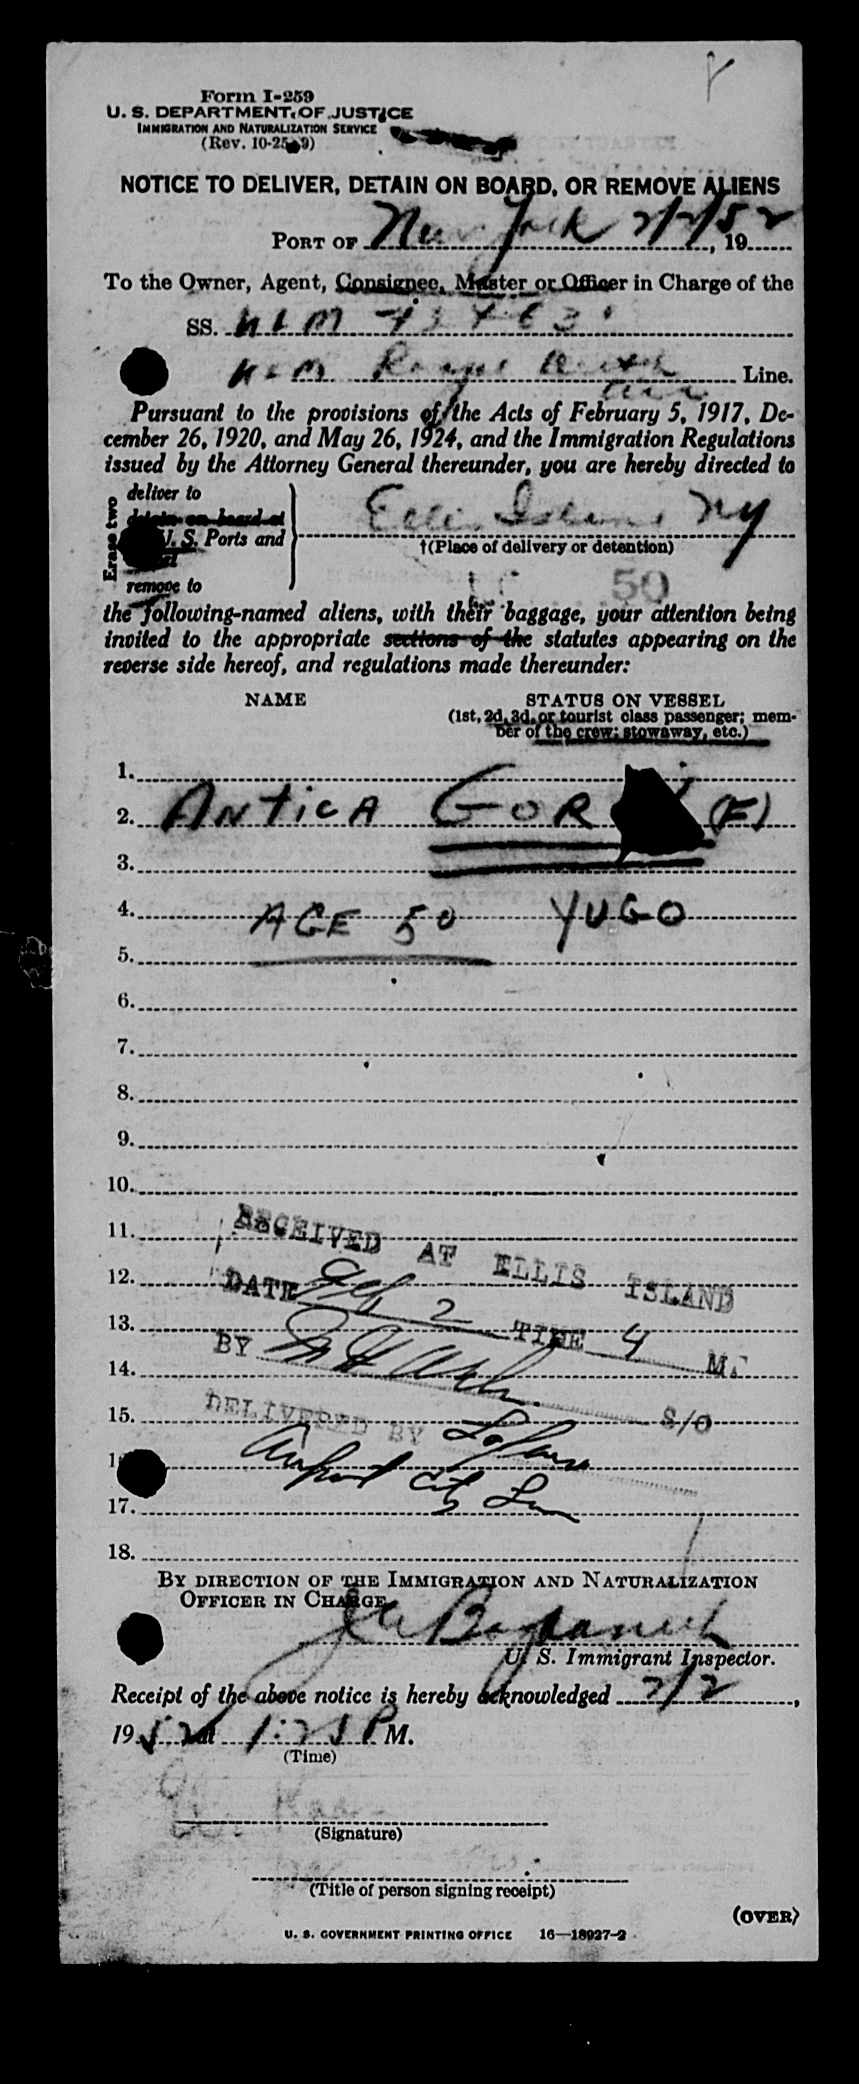 Form I-259
U. S. DEPARTMENT OF JUSTICE
IMMIGRATION AND NATURALIZATION SERVICE
(Rev. 10-25-49)
NOTICE TO DELIVER, DETAIN ON BOARD, OR REMOVE ALIENS
PORT OF New York 2/2/52, 19
To the Owner, Agent, Consignee, Master or Officer in Charge of the
SS. KLM
KLM Royal Dutch Line.
Air
Pursuant to the provisions of the Acts of February 5, 1917, De-
cember 26, 1920, and May 26, 1924, and the Immigration Regulations
issued by the Attorney General thereunder, you are hereby directed to
Erase two
deliver to
detain on board at
U. S. Ports and
remove to
Ellis Island NY
†(Place of delivery or detention)
50
the following-named aliens, with their baggage, your attention being
invited to the appropriate sections of the statutes appearing on the
reverse side hereof, and regulations made thereunder:
NAME STATUS ON VESSEL
(1st, 2d, 3d, or tourist class passenger; mem-
ber of the crew; stowaway, etc.)
1.
2. ANTICA GOR (F)
3.
4. AGE 50 YUGO
5.
6.
7.
8.
9.
10.
11. RECEIVED AT ELLIS ISLAND
12. DATE Feb 2 TIME 4 M
13.
BY S/O
14.
15. DELIVERED BY
Airport City
17.
18.
BY DIRECTION OF THE IMMIGRATION AND NATURALIZATION
OFFICER IN CHARGE
U. S. Immigrant Inspector.
Receipt of the above notice is hereby acknowledged 2/2,
1952 at 1:25 P M.
(Time)
(Signature)
(Title of person signing receipt)
(OVER)
U. S. GOVERNMENT PRINTING OFFICE 16—18927-2